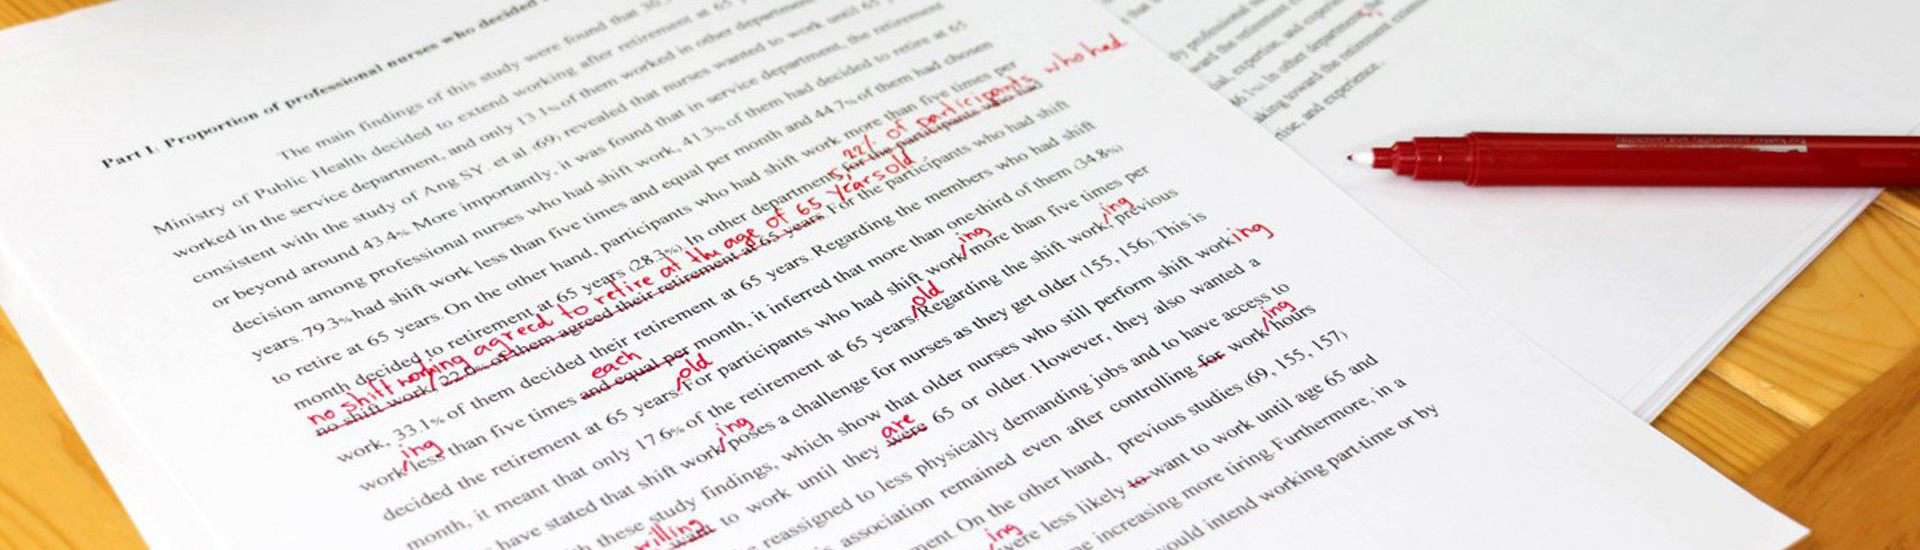 Part I. Proportion of professional nurses who decided
The main findings of this study were found that 30.
Ministry of Public Health decided to extend working after retirement at 65
worked in the service department, and only 13.1% of them worked in other department
consistent with the study of Ang SY. et al (69), revealed that nurses wanted to work until 65
or beyond around 43.4%. More importantly, it was found that in service department, the retirement
decision among professional nurses who had shift work, 41.3% of them had decided to retire at 65
years. 79.3% had shift work less than five times and equal per month and 44.7% of them had chosen
to retire at 65 years. On the other hand, participants who had shift work more than five times per
22% of participants who had
month decided to retirement at 65 years (28.3%). In other departments, for the participants who had
no shift working agreed to retire at the age of 65 years old
no shift work, 22.0% of them agreed their retirement at 65 years. For the participants who had shift
work, 33.1% of them decided their retirement at 65 years. Regarding the members who had shift
ing each
work less than five times and equal per month, it inferred that more than one-third of them (34.8%)
old ing ing
decided the retirement at 65 years. For participants who had shift work more than five times per
old
month, it meant that only 17.6% of the retirement at 65 years. Regarding the shift work, previous
ing
have stated that shift work poses a challenge for nurses as they get older (155, 156). This is
these study findings, which show that older nurses who still perform shift working
willing are
want to work until they were 65 or older. However, they also wanted a
reassigned to less physically demanding jobs and to have access to
ing
association remained even after controlling for work hours
On the other hand, previous studies (69, 155, 157)
ing
were less likely to want to work until age 65 and
increasing more tiring. Furthermore, in a
would intend working part-time or by